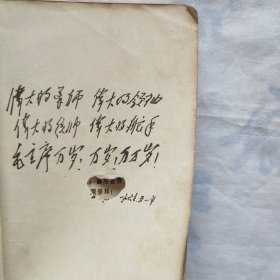 伟大的导师 伟大的领袖
伟大的统帅 伟大的舵手
毛主席万岁！万岁！万万岁！